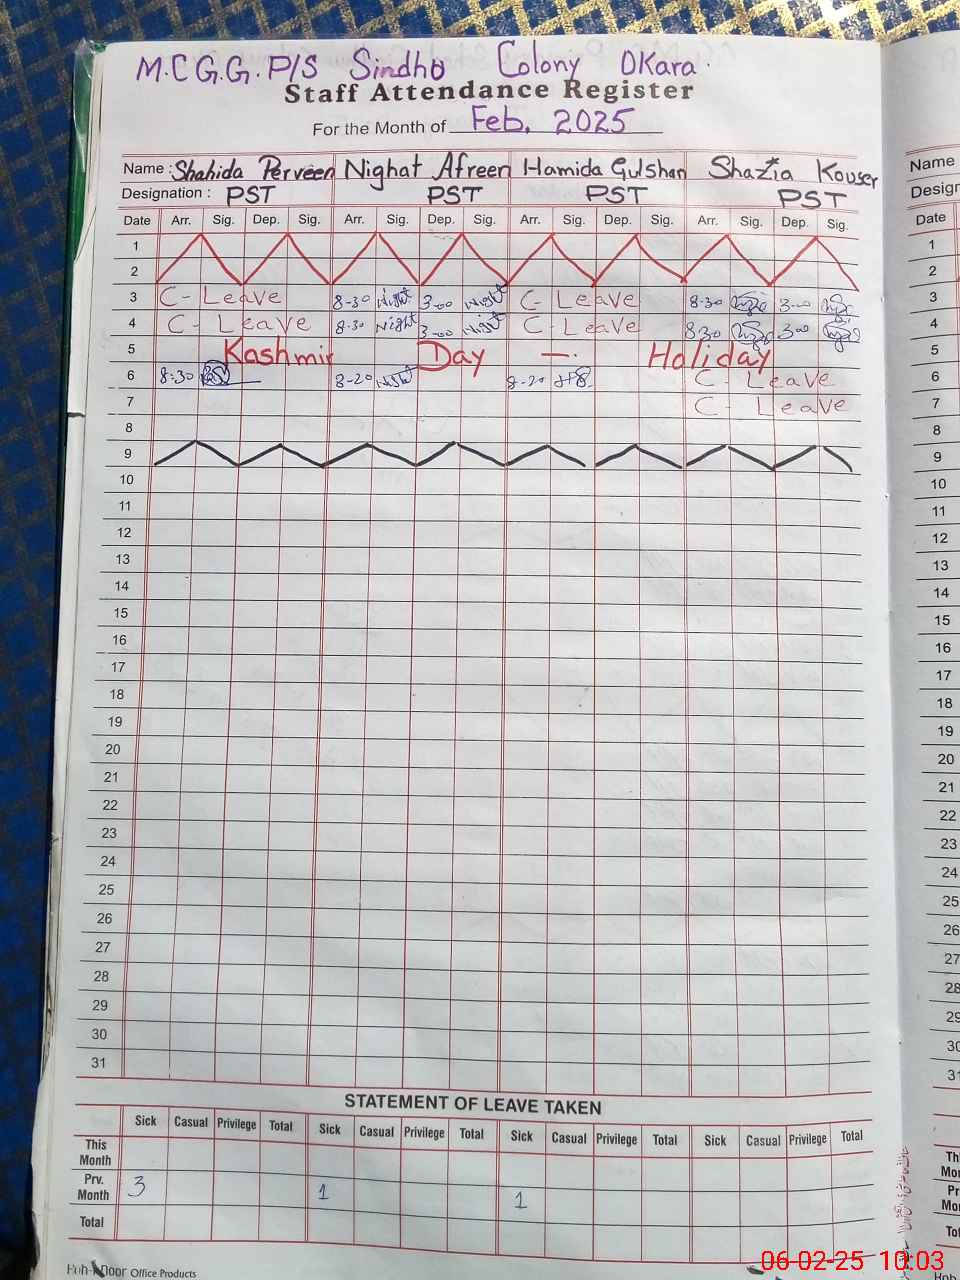 M.C G.G. P/S Sindhu Colony Okara.
Staff Attendance Register
For the Month of Feb. 2025
Name : Shahida Perveen Nighat Afreen Hamida Gulshan Shazia Kouser
Designation : PST PST PST PST
Date Arr. Sig. Dep. Sig. Arr. Sig. Dep. Sig. Arr. Sig. Dep. Sig. Arr. Sig. Dep. Sig.
1
2
3 C- Leave 8-30 Nighat 3-00 Nighat C- Leave 8-30 3-00
4 C- Leave 8-30 Nighat 3-00 Nighat C- Leave 8-30 3-00
5 Kashmir Day - Holiday
6 8:30 8-20 Nighat 8-20 C- Leave
7 C- Leave
8
9
10
11
12
13
14
15
16
17
18
19
20
21
22
23
24
25
26
27
28
29
30
31
STATEMENT OF LEAVE TAKEN
Sick Casual Privilege Total Sick Casual Privilege Total Sick Casual Privilege Total Sick Casual Privilege Total
This Month
Prv. Month 3 1 1
Total
Office Products
Name
Desig
Date
1
2
3
4
5
6
7
8
9
10
11
12
13
14
15
16
17
18
19
20
21
22
23
24
25
26
27
28
29
30
31
06-02-25 10:03